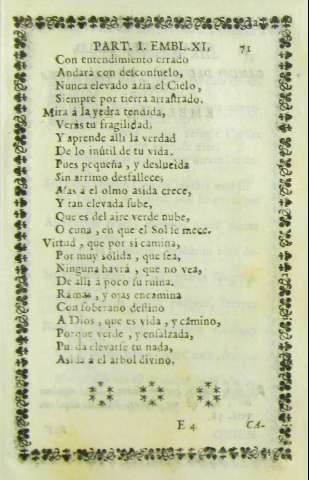 PART. I. EMBL. XI. 71
Con entendimiento errado
Andarà con desconsuelo,
Nunca elevado azia el Cielo,
Siempre por tierra arrastrado.
Mira à la yedra tendida,
Veràs tu fragilidad,
Y aprende alli la verdad
De lo inútil de tu vida.
Pues pequeña, y deslucida
Sin arrimo desfallece;
Mas à el olmo asida crece,
Y tan elevada sube,
Que es del aire verde nube,
O cuna, en que el Sol se mece.
Virtud, que por sì camina,
Por muy sólida, que sea,
Ninguna havrà, que no vea,
De alli à poco su ruina.
Ramas, y ojas encamina
Con soberano destino
A Dios, que es vida, y cámino,
Porque verde, y ensalzada,
Pueda elevarse tu nada,
Asida à el arbol divino.
E 4 CA-